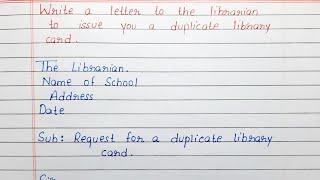 Write a letter to the librarian
to issue you a duplicate library
card.
The Librarian.
Name of School
Address
Date
Sub: Request for a duplicate library
card.